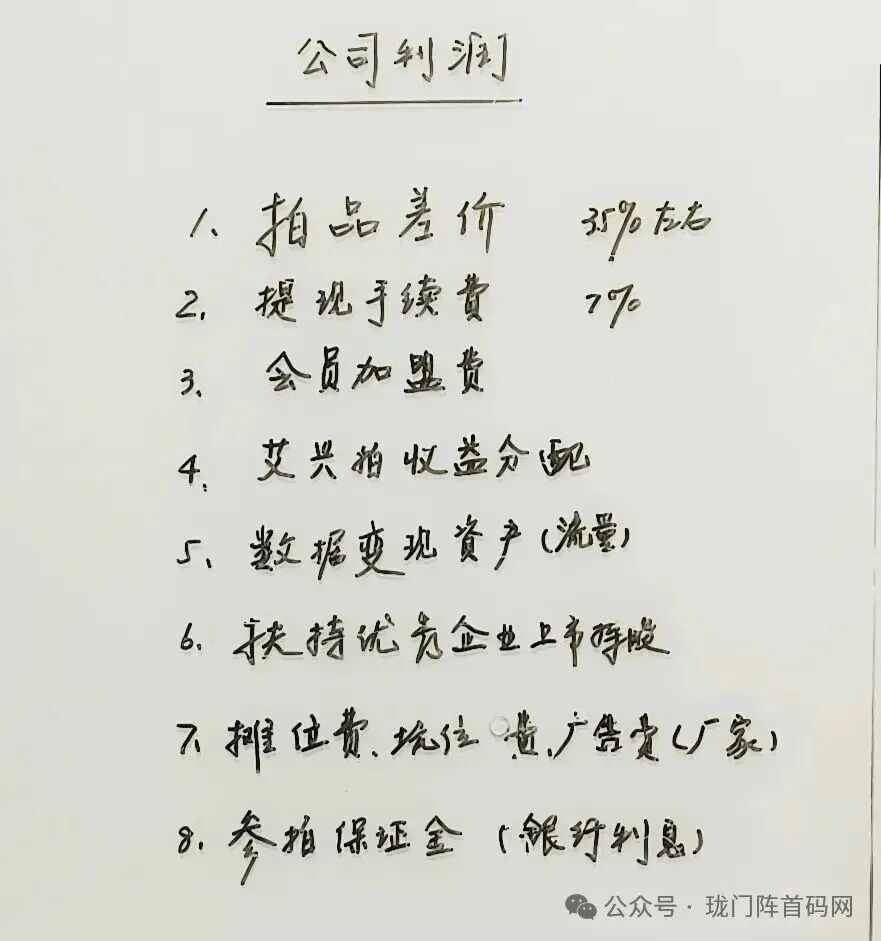 公司利润
1、拍品差价 35%左右
2、提现手续費
7%
3、会员加盟费
4、艾兴拍收益分配
5、数据变现資产(流量)
6、扶持优秀企业上市持股
7、摊位費、坑位費、广告费(厂家)
8、参拍保证金(银行利息)
公众号·珑门阵首码网